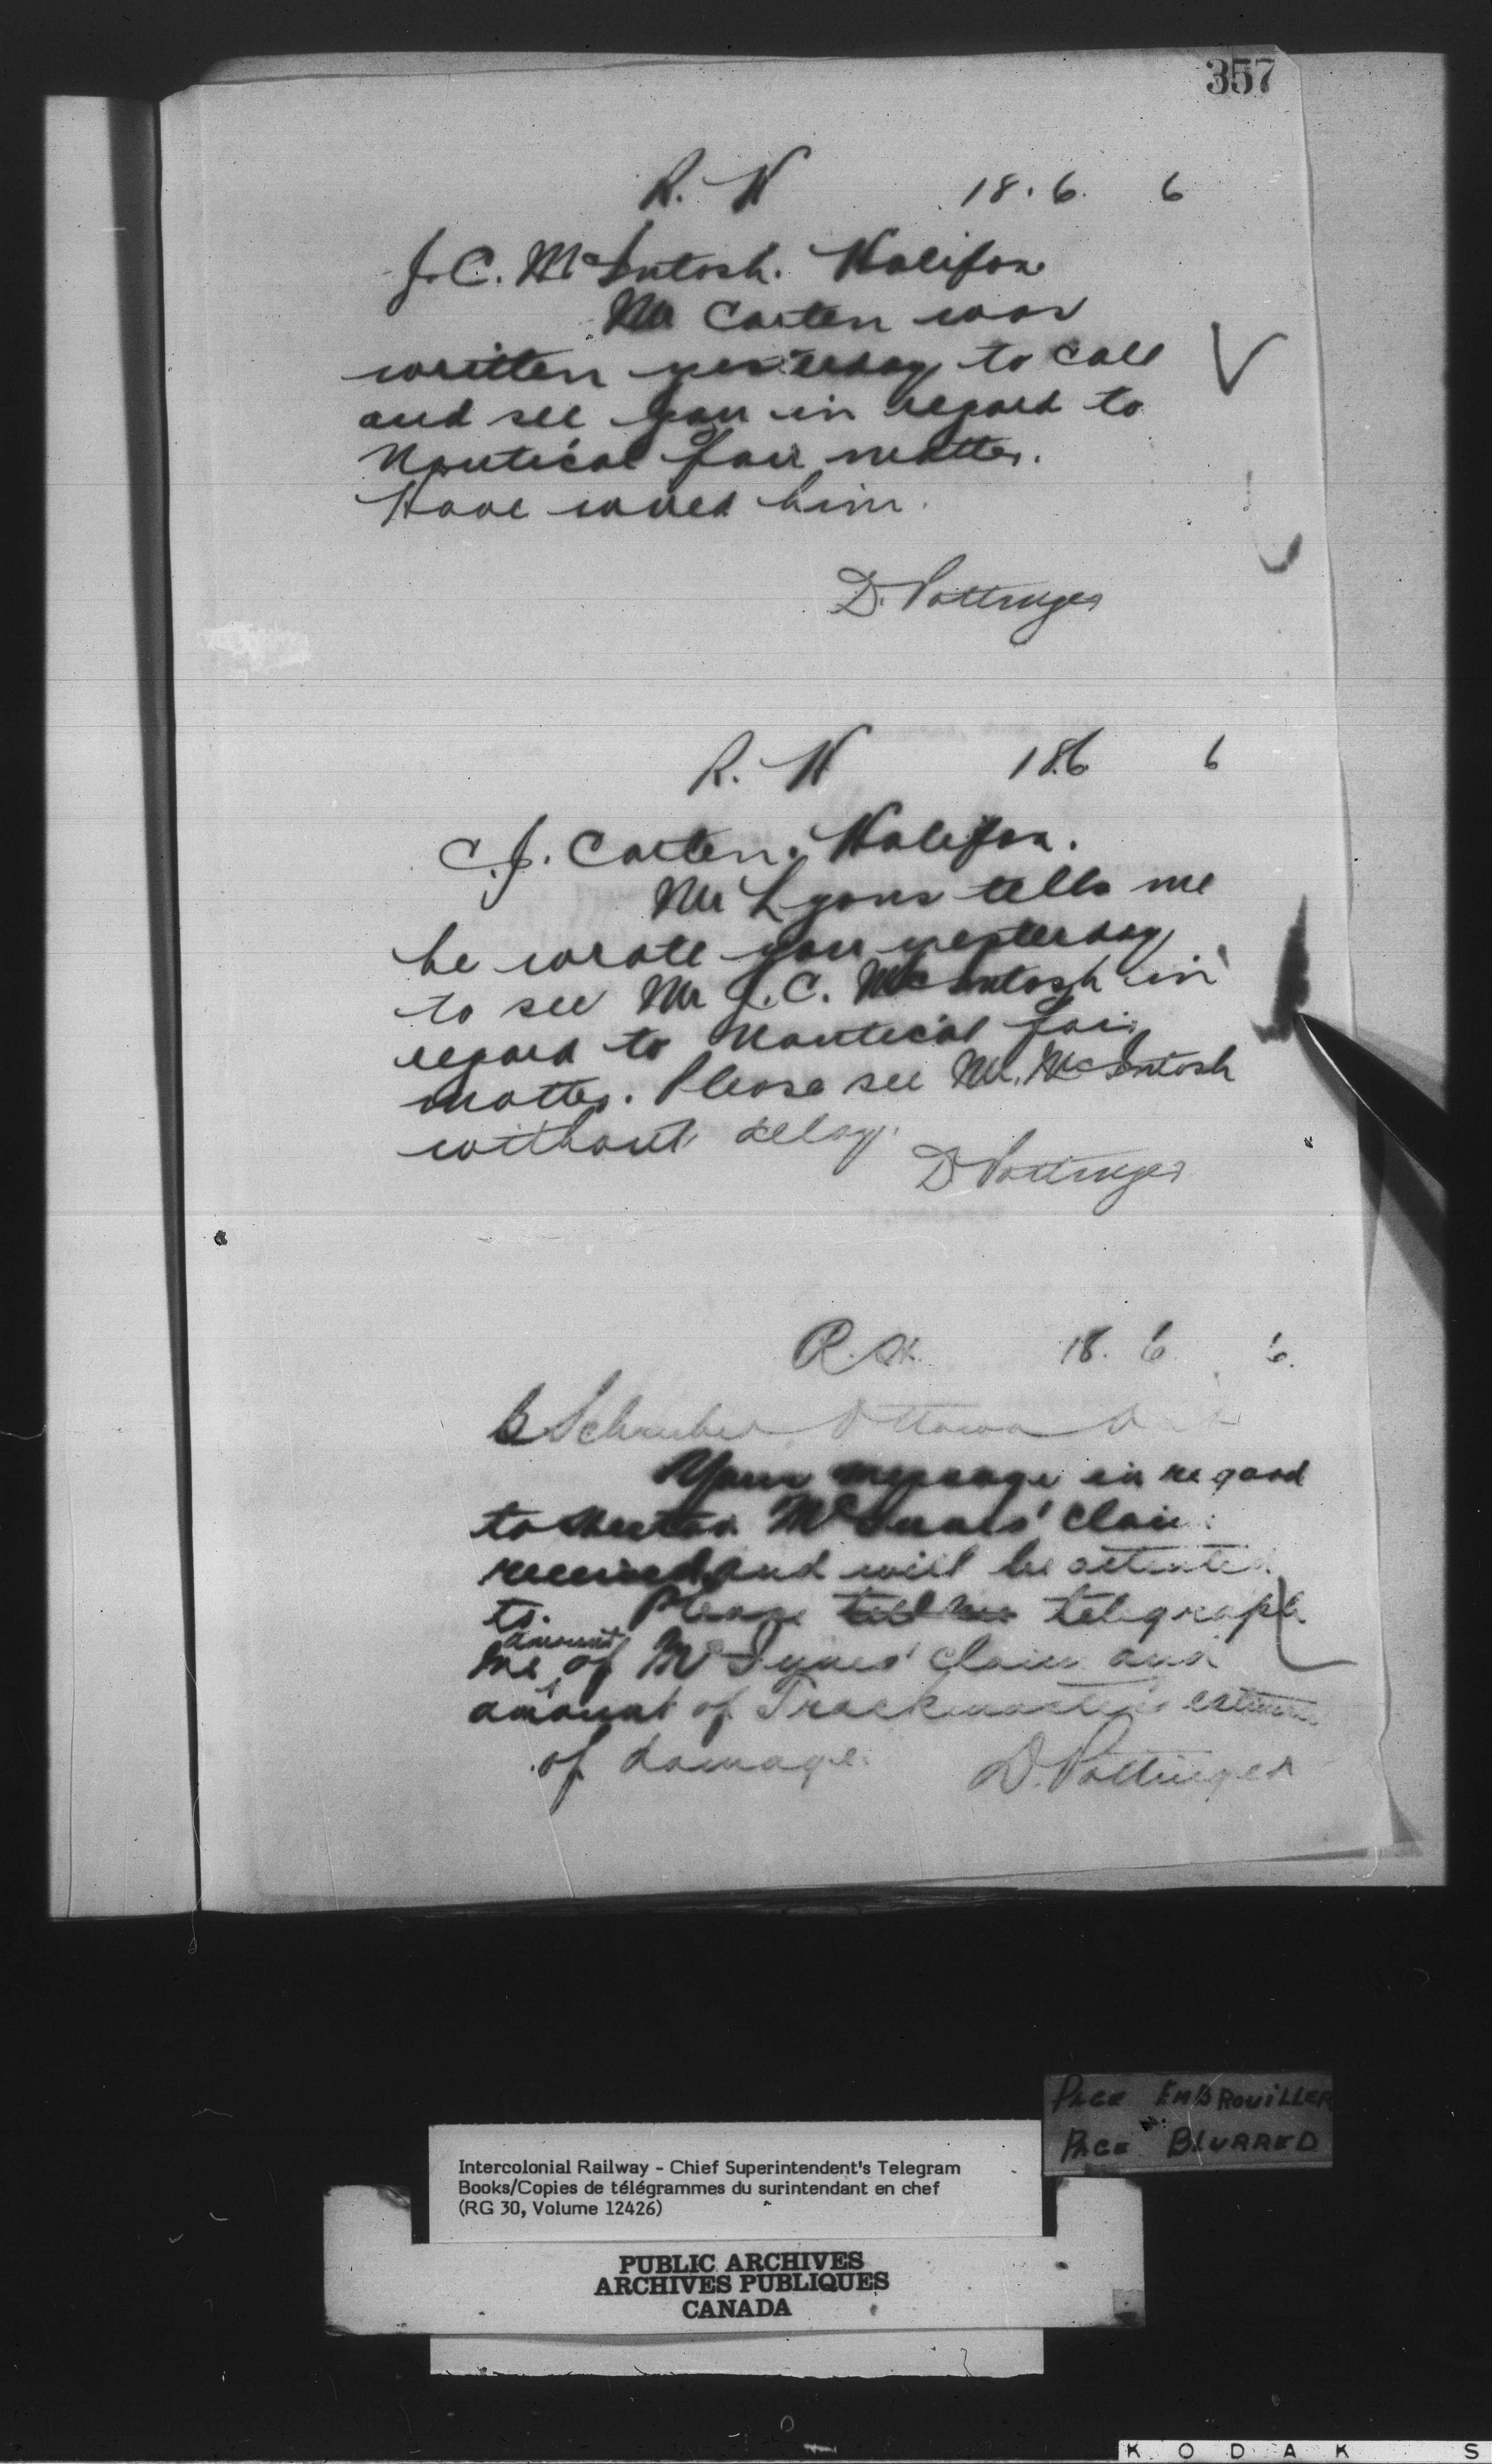 357
R. H 18.6. 6
J. C. McIntosh. Halifax
Mr Carten was
written yesterday to call
and see you in regard to
Nautical fair matter.
Have wired him.
D. Pottinger
R. H 18.6 6
C. J. Carten. Halifax.
Mr Lyons tells me
he wrote you yesterday
to see Mr J. C. McIntosh in
regard to Nautical fair
matter. Please see Mr. McIntosh
without delay.
D Pottinger
R. 18. 6 6.
Schreiber Ottawa
Your message in regard
to McInnes' claim
received and will be attended
to. Please tell me telegraph
amount
me of McInnes' claim and
amount of Trackmaster's estimate
of damage. D. Pottinger
PAGE EMBROUILLER
PAGE BLURRED
Intercolonial Railway - Chief Superintendent's Telegram
Books/Copies de télégrammes du surintendant en chef
(RG 30, Volume 12426)
PUBLIC ARCHIVES
ARCHIVES PUBLIQUES
CANADA
K O D A K S